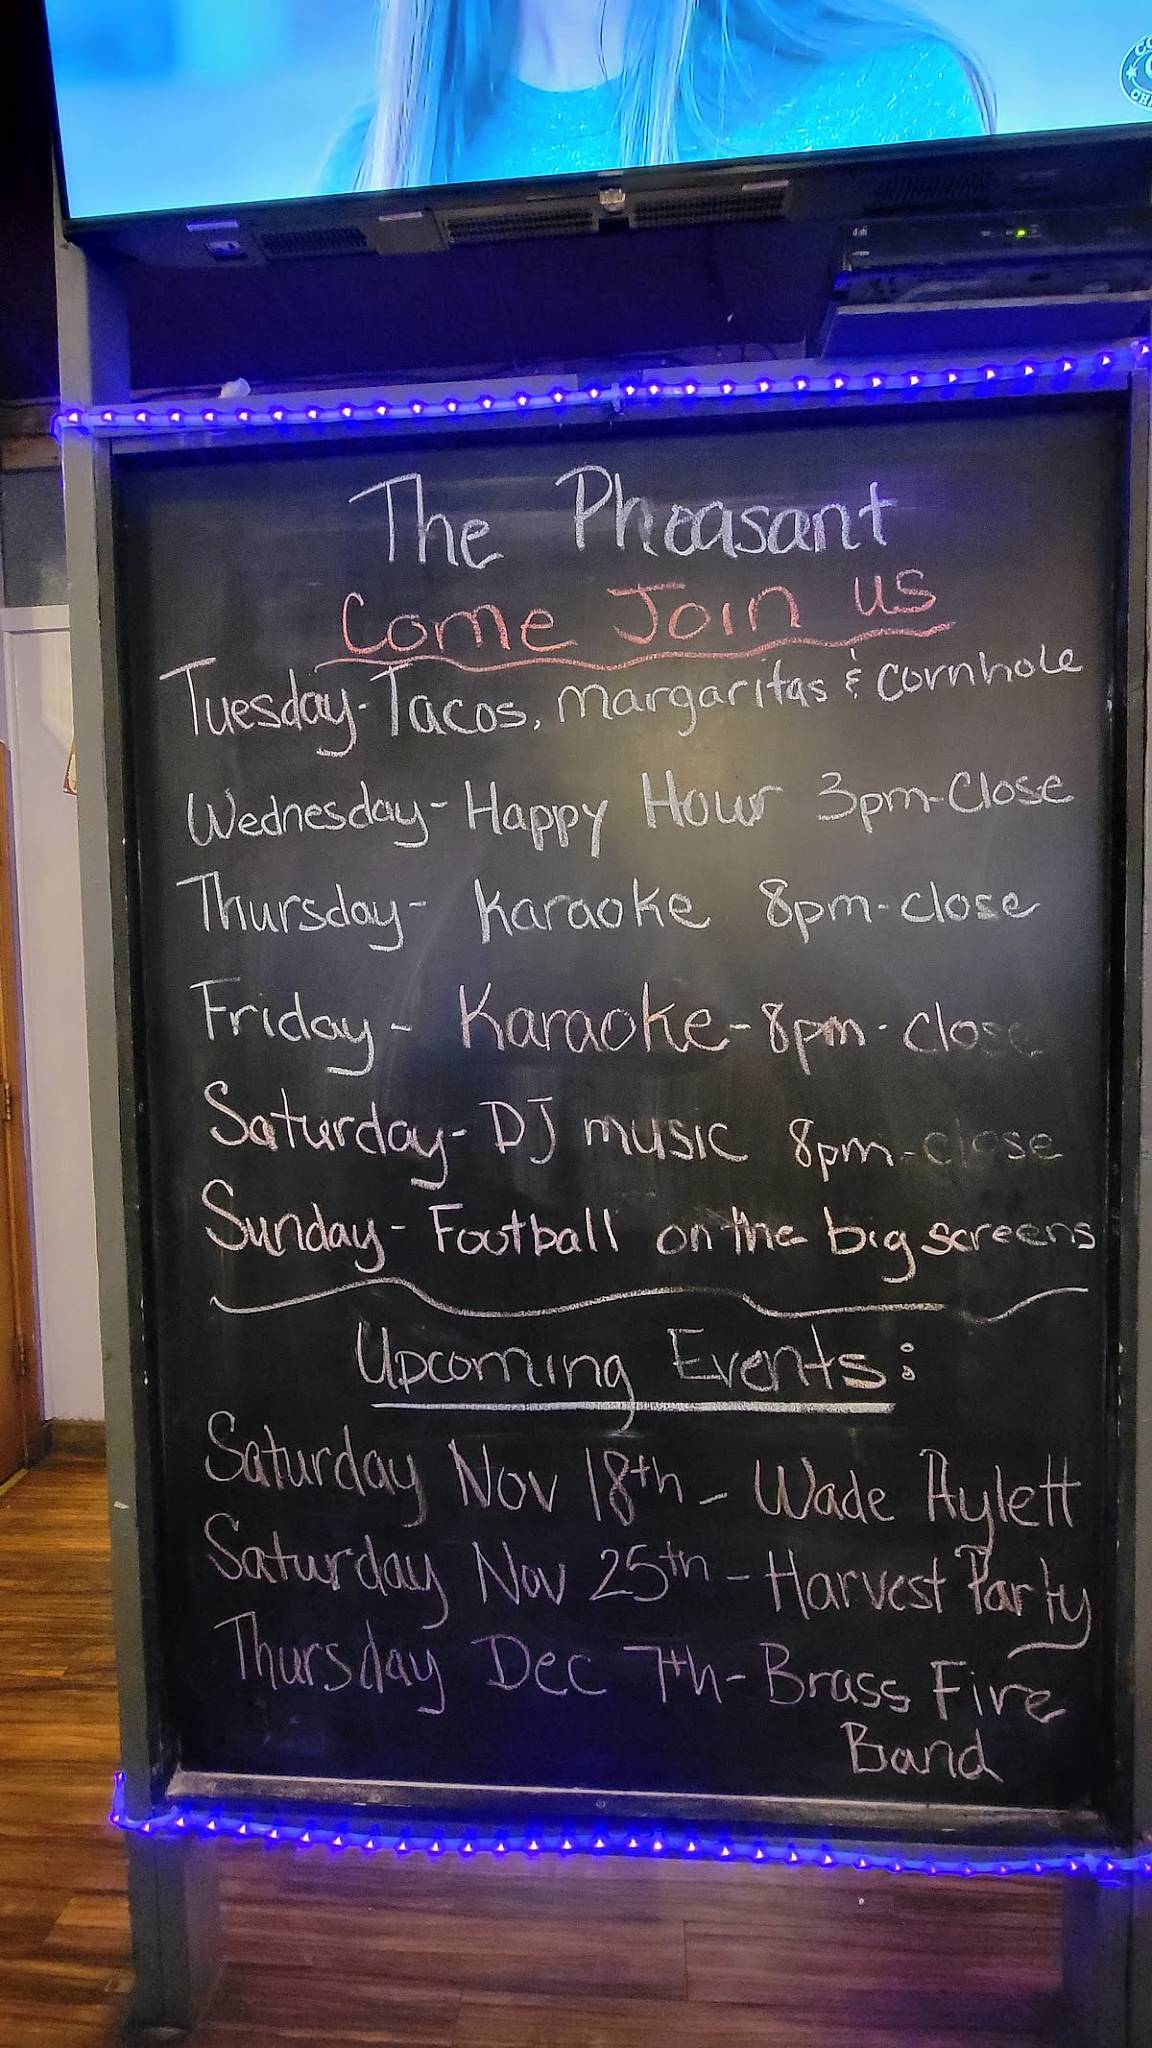 The Pheasant
Come Join us
Tuesday- Tacos, margaritas & cornhole
Wednesday- Happy Hour 3pm-Close
Thursday- Karaoke 8pm-close
Friday- Karaoke-8pm-close
Saturday- DJ music 8pm-close
Sunday- Football on the big screens
Upcoming Events:
Saturday Nov 18th - Wade Aylett
Saturday Nov 25th - Harvest Party
Thursday Dec 7th- Brass Fire
Band